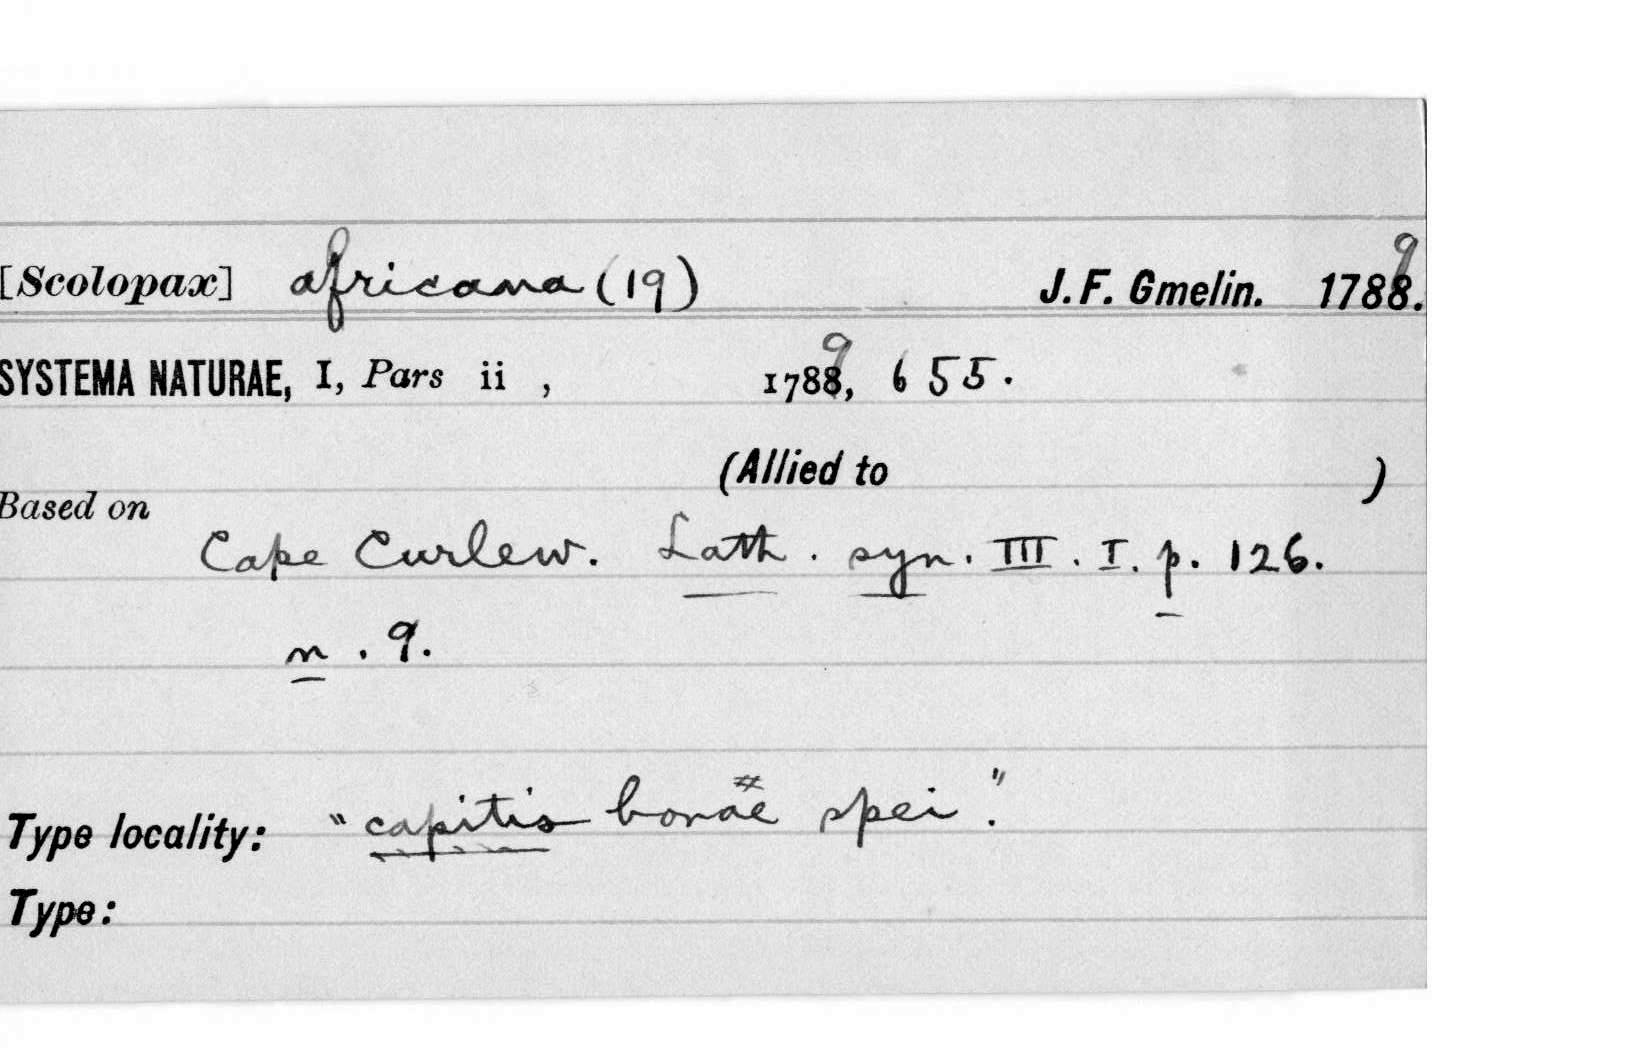 [Scolopax] africana (19) J. F. Gmelin. 1789.
SYSTEMA NATURAE, I, Pars ii , 1789, 655.
(Allied to )
Based on
Cape Curlew. Lath. syn. III. I. p. 126.
n. 9.
Type locality: "capitis bonae spei."
Type: